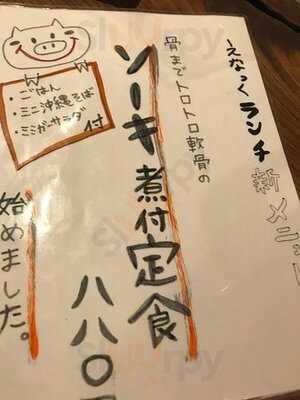 ～えなっくランチ 新メニュー
骨までトロトロ軟骨の
ソーキ煮付定食
八八〇
・ごはん
・ミニ沖縄そば
・ミミガーサラダ
付
始めました。